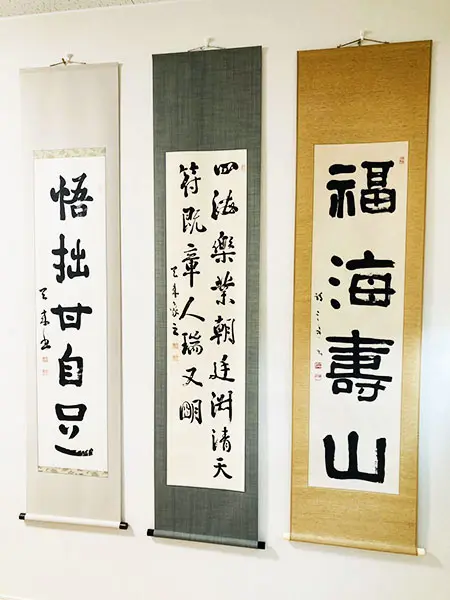 福海壽山
四海樂業朝廷渕清天
符既章人瑞又明
悟拙甘自足